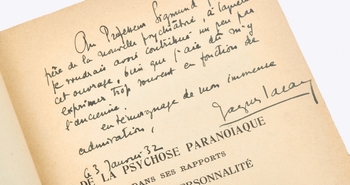 Au Professeur Sigmund F
père de la nouvelle psychiatrie, à laquelle
je voudrais avoir contribué un peu par
cet ouvrage, bien que j'aie dû m'y
exprimer trop souvent en fonction de
l'ancienne.
en témoignage de mon immense
admiration,
Jacques Lacan
Janvier 32
DE LA PSYCHOSE PARANOIAQUE
DANS SES RAPPORTS
PERSONNALITÉ